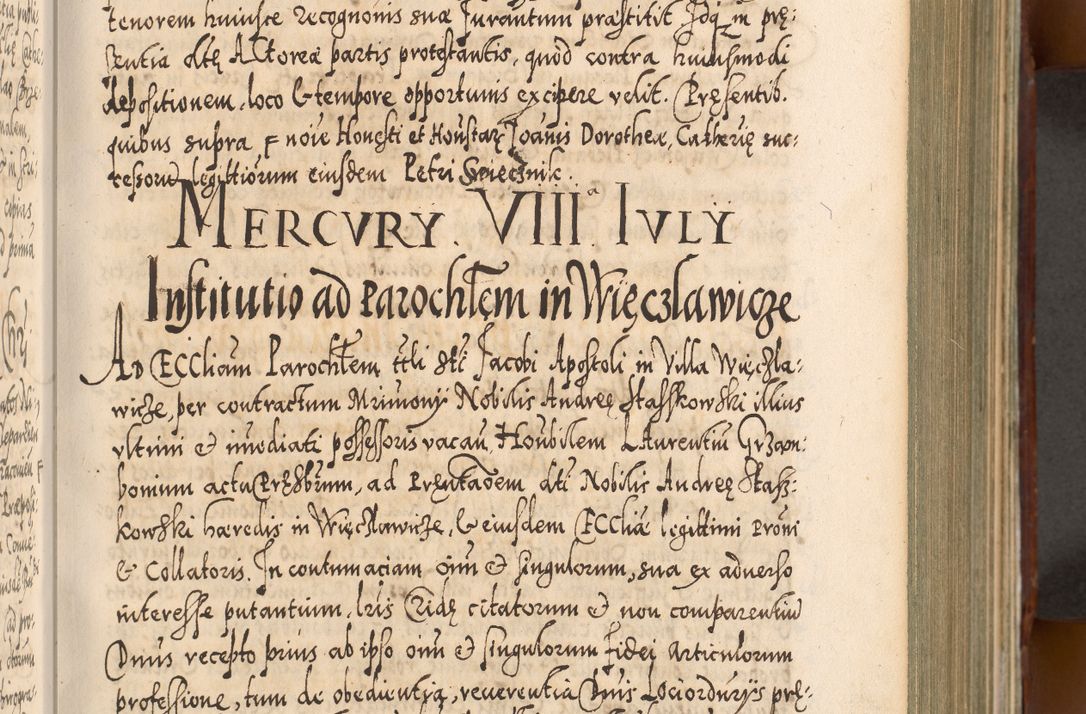 tenorem huiusce recognonis suæ Jurantium præstitit Idq in prę:
sentia dtę Actoreæ partis protestantis, quod contra huiusmodi
depositionem, loco & tempore opportunis excipere velit. Pręsentib.
quibus supra p noie Honesti et Honstarę Joanis Dorotheæ, Catherię suc:
cessorū legittiorum eiusdem Petri Swięcznik.
MERCVRY. VIIIa. IVLY
Institutio ad Parochlem in Więczlawicze
AD ECCliam Parochlem ttli Sti Jacobi Apostoli in Villa Więczla:
wicze, per contractum Mrimonÿ Nobilis Andreę Stasskowski illius
vltimi & imediati possessoris vacan, Honbilem LAurentiū Grzam:
bonium actu Pręsbrum, ad Pręntaōem dti Nobilis Andreę Stasz:
kowski hæredis in Więczlawicze, & eiusdem ECCliæ legittimi Proni
& Collatoris. In contumaciam oim & singulorum, sua ex aduerso
interesse putantium, lris Eidę citatorum & non comparentiū
Dnus recepto prius ab ipso oim & singulorum Fidei Articulorum
professione, tum de obedientia, reuerentia Dnis Lociordurÿs prę: